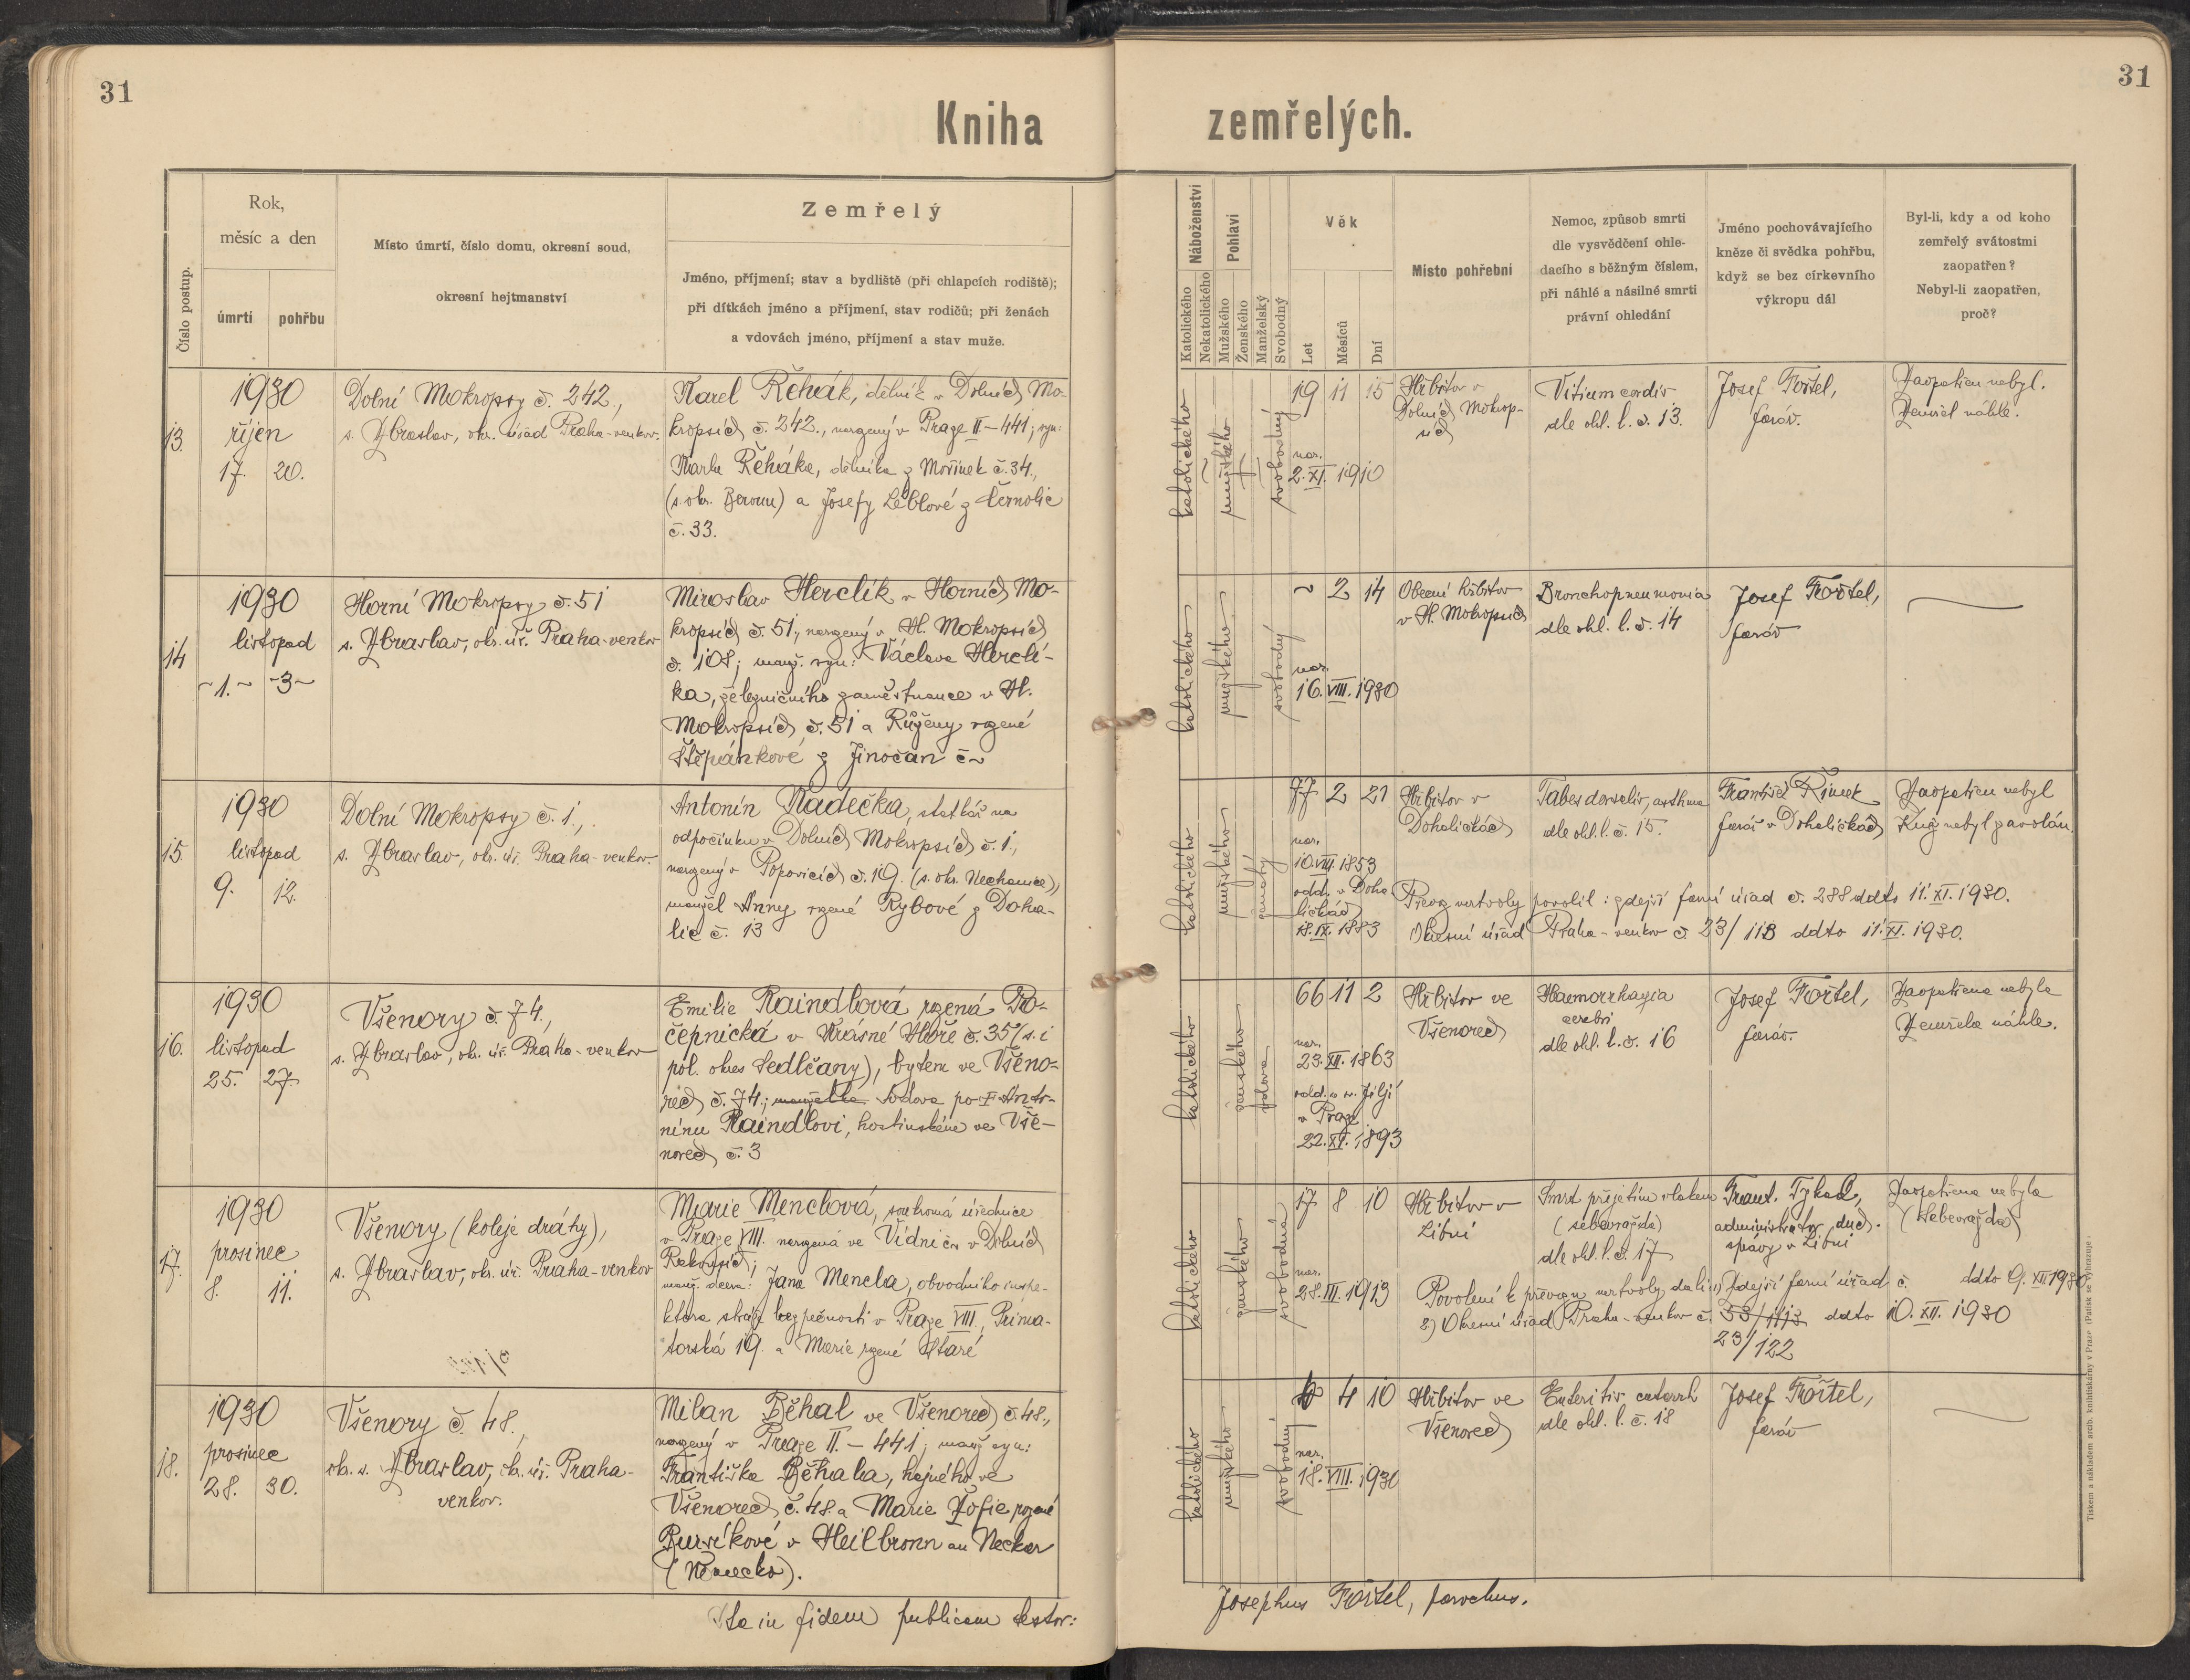 31
31
Kniha zemřelých.
Číslo postup.
Rok,
měsíc a den
úmrtí
pohřbu
Místo úmrtí, číslo domu, okresní soud,
okresní hejtmanství
Zemřelý
Jméno, příjmení; stav a bydliště (při chlapcích rodiště);
při dítkách jméno a příjmení, stav rodičů; při ženách
a vdovách jméno, příjmení a stav muže.
Náboženství
Katolického
Nekatolického
Pohlaví
Mužského
Ženského
Manželský
Svobodný
Věk
Let
Měsíců
Dní
Místo pohřební
Nemoc, způsob smrti
dle vysvědčení ohle-
dacího s běžným číslem,
při náhlé a násilné smrti
právní ohledání
Jméno pochovávajícího
kněze či svědka pohřbu,
když se bez církevního
výkropu dál
Byl-li, kdy a od koho
zemřelý svátostmi
zaopatřen?
Nebyl-li zaopatřen,
proč?
13.
1930
říjen
17. 20.
Dolní Mokropsy č. 242.,
s. Zbraslav, okr. úřad Praha-venkov.
Karel Řehák, dělník v Dolních Mo-
kropsích č. 242., narozený v Praze II-441; syn:
Karla Řeháka, dělníka z Mořinek č. 34.,
(s. okr. Beroun) a Josefy Leblové z Černolic
č. 33.
katolického
mužského
svobodný
19 11 15
nar.
2. XI. 1910
Hřbitov v
Dolních Mokrop-
sích
Vitium cordis
dle ohl. l. č. 13.
Josef Fořtel,
farář.
Zaopatřen nebyl.
Zemřel náhle.
14
1930
listopad
~1.~ ~3~
Horní Mokropsy č. 51
s. Zbraslav, okr. úř. Praha-venkov
Miroslav Herclík v Horních Mo-
kropsích č. 51., narozený v H. Mokropsích
č. 108; manž. syn: Václava Herclí-
ka, železničního zaměstnance v H.
Mokropsích č. 51 a Růženy rozené
Štěpánkové z Jinočan č ~
katolického
mužského
svobodný
~ 2 14
nar.
16. VIII. 1930
Obecní hřbitov
v H. Mokropsích
Bronchopneumonia
dle ohl. l. č. 14
Josef Fořtel,
farář
15.
1930
listopad
9. 12.
Dolní Mokropsy č. 1.,
s. Zbraslav, okr. úř. Praha-venkov.
Antonín Kadečka, statkář na
odpočinku v Dolních Mokropsích č. 1.,
narozený v Popovicích č. 19. (s. okr. Nechanice),
manžel Anny rozené Rybové z Doha-
lic č. 13
katolického
mužského
ženatý
77 2 21
nar.
10. VIII. 1853
odd. v Doha-
ličkách
18. IX. 1883
Hřbitov v
Dohaličkách
Tabes dorsalis, asthma
dle ohl. l. č. 15.
František Řinek
farář v Dohaličkách
Zaopatřen nebyl
Kněz nebyl zavolán.
Převoz mrtvoly povolil: zdejší farní úřad č. 288 ddto 11. XI. 1930.
Okresní úřad Praha-venkov č. 23/113 ddto 11. XI. 1930.
16.
1930
listopad
25. 27.
Všenory č. 74.,
s. Zbraslav, okr. úř. Praha-venkov
Emilie Raindlová rozená Po-
čepnická v Krásné Hoře č. 35 (s. i
pol. okres Sedlčany), bytem ve Všeno-
rech č. 74.; manželka vdova po † Anto-
nínu Raindlovi, hostinském ve Vše-
norech č. 3
katolického
ženského
vdova
66 11 2
nar.
23. XII. 1863
odd. u sv. Jiljí
v Praze
22. XI. 1893
Hřbitov ve
Všenorech
Haemorrhagia
cerebri
dle ohl. l. č. 16
Josef Fořtel,
farář.
Zaopatřena nebyla
Zemřela náhle.
17.
1930
prosinec
8. 11.
Všenory (koleje dráhy),
s. Zbraslav, okr. úř. Praha-venkov
Marie Menclová, soukromá úřednice
v Praze VIII. narozená ve Vídni č ~ v Dolních
Rakousích;
manž. dcera: Jana Mencla, obvodního inspe-
ktora stráže bezpečnosti v Praze VIII., Prima-
torská 19. a Marie rozené Staré
katolického
ženského
svobodná
17 8 10
nar.
28. III. 1913
Hřbitov v
Libni
Smrt přejetím vlakem
(sebevražda)
dle ohl. l. č. 17
Frant. Tykal,
administrátor duch.
správy v Libni
Zaopatřena nebyla
(Sebevražda)
Povolení k převozu mrtvoly dali: 1) Zdejší farní úřad č. ddto 9. XII 1930
2) Okresní úřad Praha-venkov č. 53/1113 ddto 10. XII. 1930
23/122
18.
1930
prosinec
28. 30.
Všenory č. 48.,
okr. s. Zbraslav, okr. úř. Praha-
venkov.
Milan Běhal ve Všenorech č. 48.,
narozený v Praze II. – 441; manž. syn:
Františka Běhala, hajného ve
Všenorech č. 48. a Marie Žofie rozené
Bursíkové v Heilbronn an Neckar
(Německo).
katolického
mužského
svobodný
4 10
nar.
18. VIII. 1930
Hřbitov ve
Všenorech
Enteritis catarrh
dle ohl. l. č. 18
Josef Fořtel,
farář
Ita in fidem publicam testor:
Josephus Fořtel, parochus.